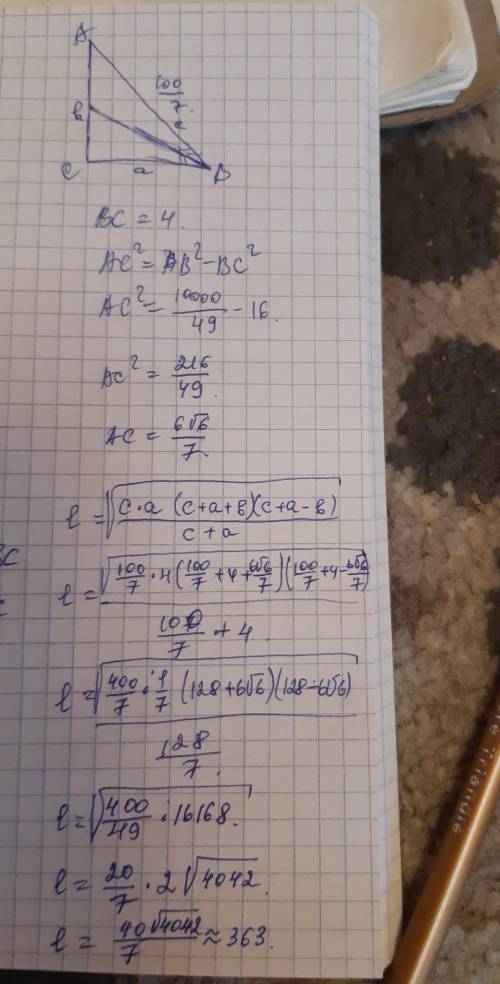 A
100/7
в
c
C a B
BC = 4.
AC² = AB² - BC²
AC² = 10000/49 - 16.
AC² = 216/49.
AC = 6√6/7.
ВС
l = √(c·a (c+a+в)(c+a-в))/(c+a)
l = √(100/7·4(100/7+4+6√6/7)(100/7+4-6√6/7))/(100/7+4.)
l = √(400/7·1/7 (128+6√6)(128-6√6))/(128/7.)
l = √(400/49·16168.)
l = 20/7·2√4042.
l = 40√4042/7 ≈ 363.